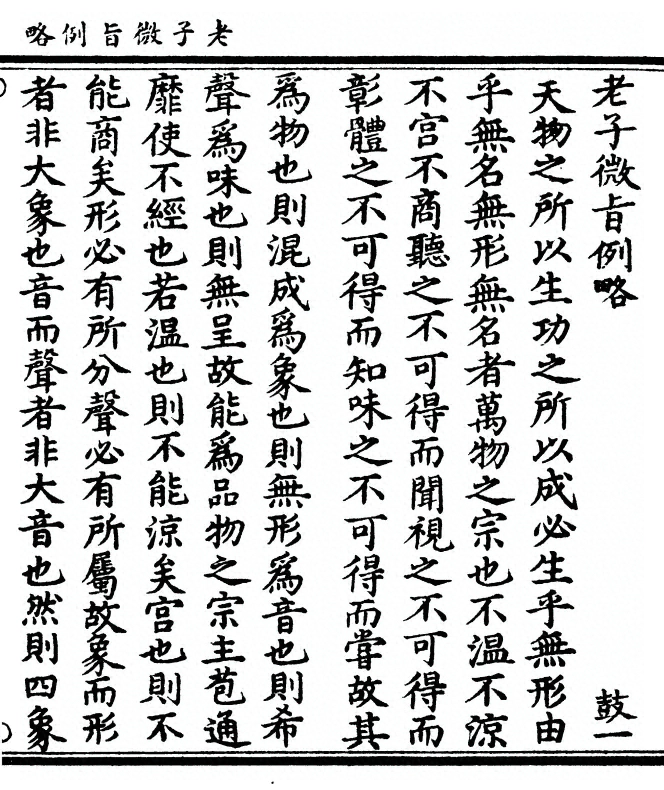 老子微旨例略
老子微旨例略　鼓一
天物之所以生功之所以成必生乎無形由
乎無名無形無名者萬物之宗也不温不涼
不宫不商聽之不可得而聞視之不可得而
彰體之不可得而知味之不可得而甞故其
爲物也則混成爲象也則無形爲音也則希
聲爲味也則無呈故能爲品物之宗主苞通
靡使不經也若温也則不能涼矣宫也則不
能商矣形必有所分聲必有所屬故象而形
者非大象也音而聲者非大音也然則四象